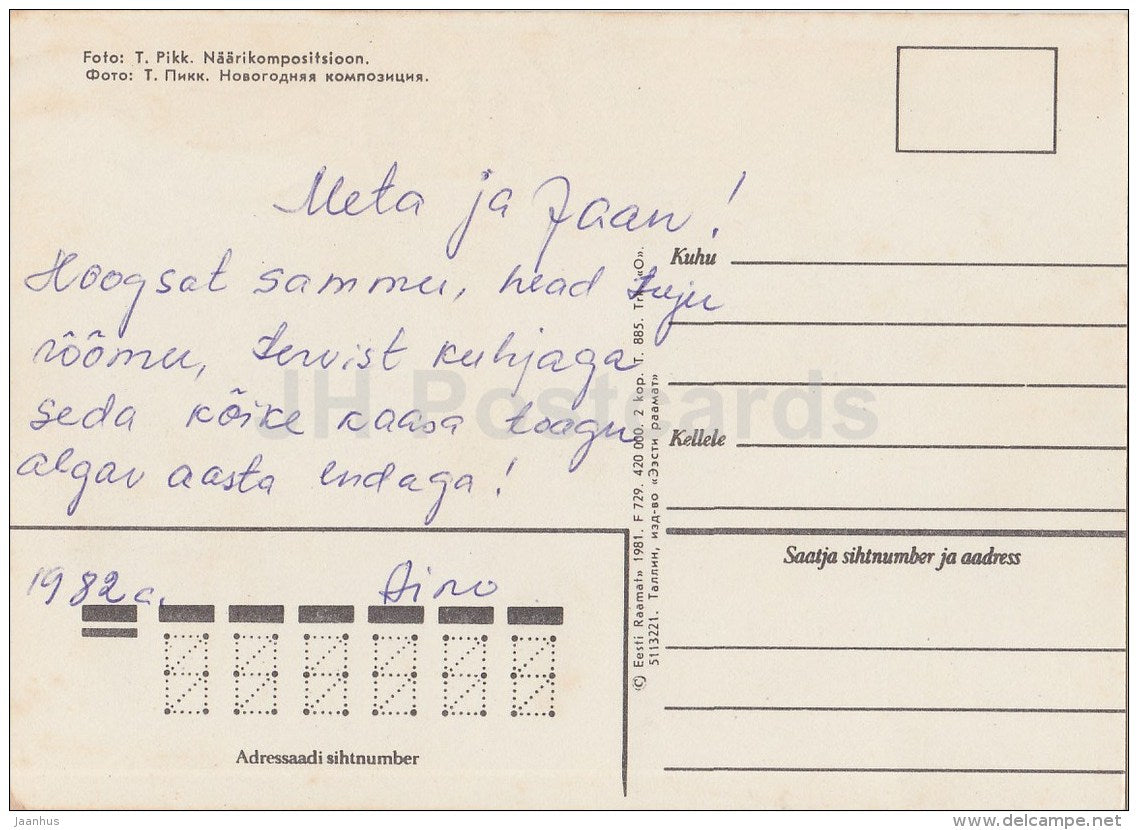 Foto: T. Pikk. Näärikompositsioon.
Фото: Т. Пикк. Новогодняя композиция.
Meta ja Jaan!
Hoogsat sammu, head tuju
rõõmu, tervist kuhjaga
seda kõike kaasa toogu
algav aasta endaga!
1982 a. Aino
Adressaadi sihtnumber
© Eesti Raamat» 1981. F 729. 420 000. 2 kop. T. 885. Trk. «O».
5113221. Таллин, изд-во «Ээсти раамат»
Kuhu
Kellele
Saatja sihtnumber ja aadress
JH Postcards
Jaanhus
delcampe.net